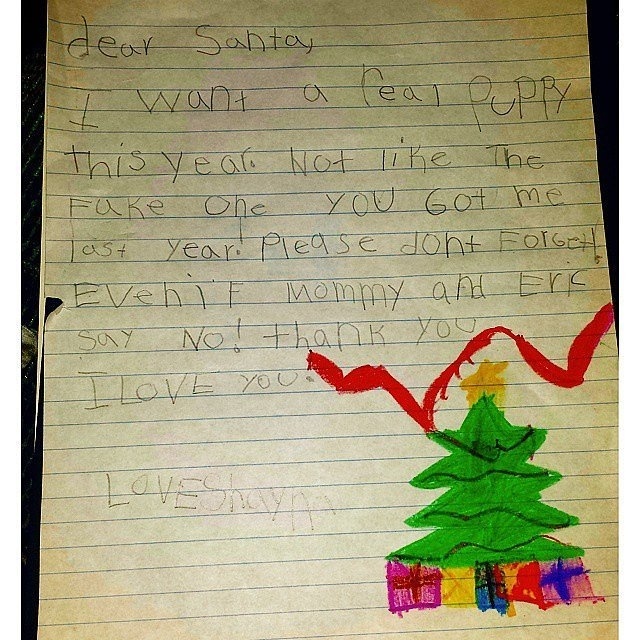 dear Santa,
I want a real puppy
this year. Not like The
Fake one you Got me
last year! Please dont Forget!
Even iF Mommy and Eric
say No! thank you
I LOVE you.
LOVE Shayna